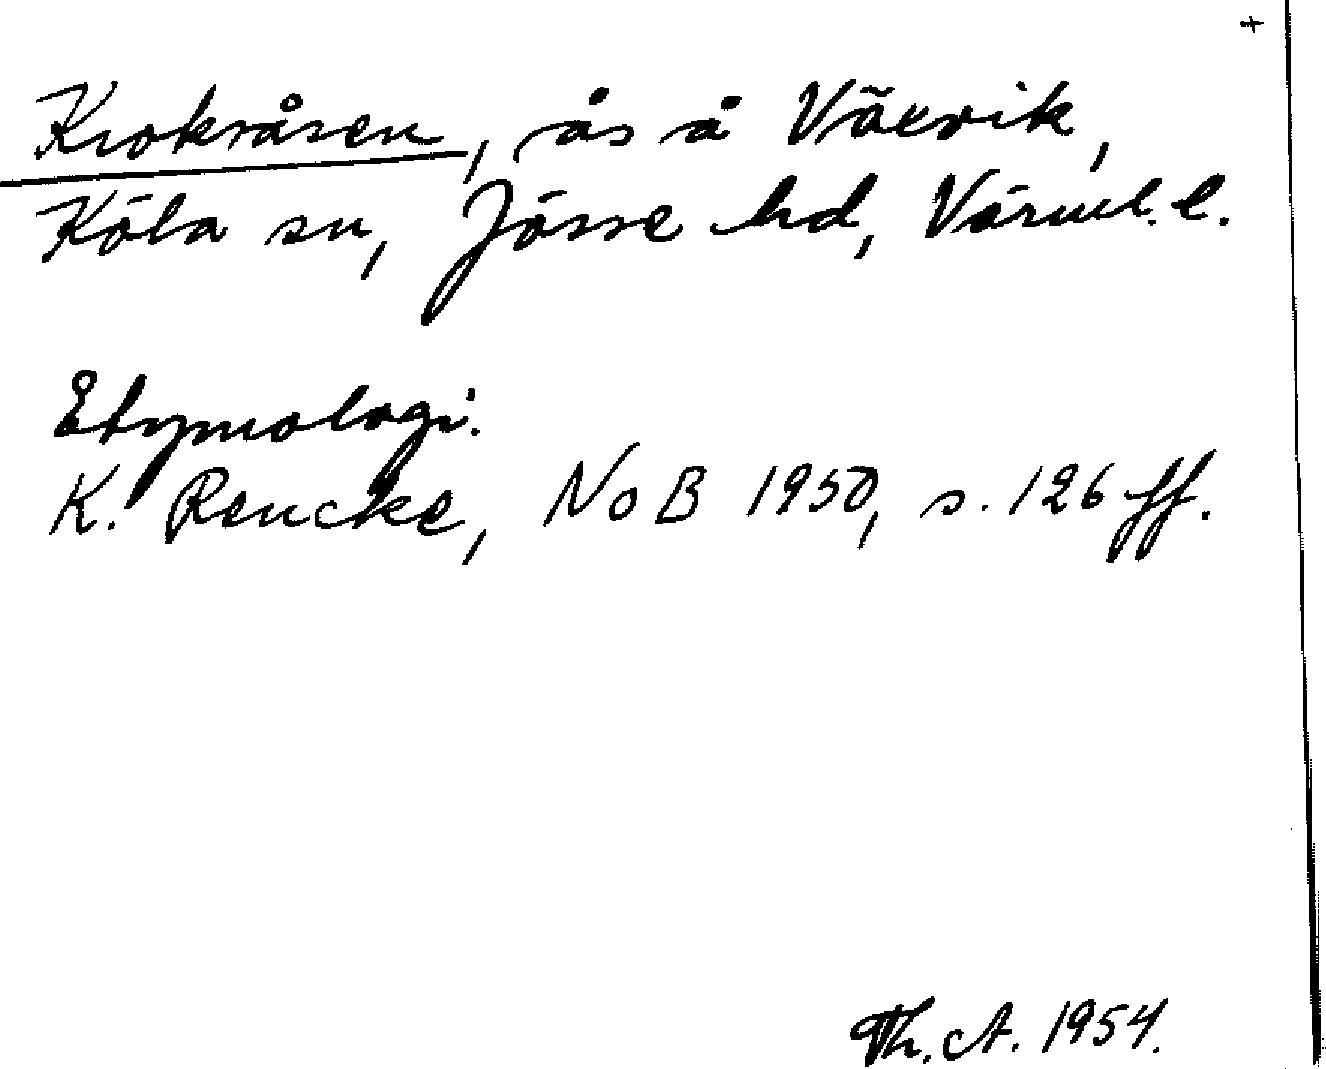 +
Krokråsen, ås å Växvik,
Köla sn, Jösse hd, Värml. l.
Etymologi.
K. Rencke, NoB 1950, s. 126 ff.
Th. A. 1954.